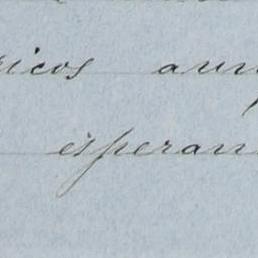 ricos aun
esperan